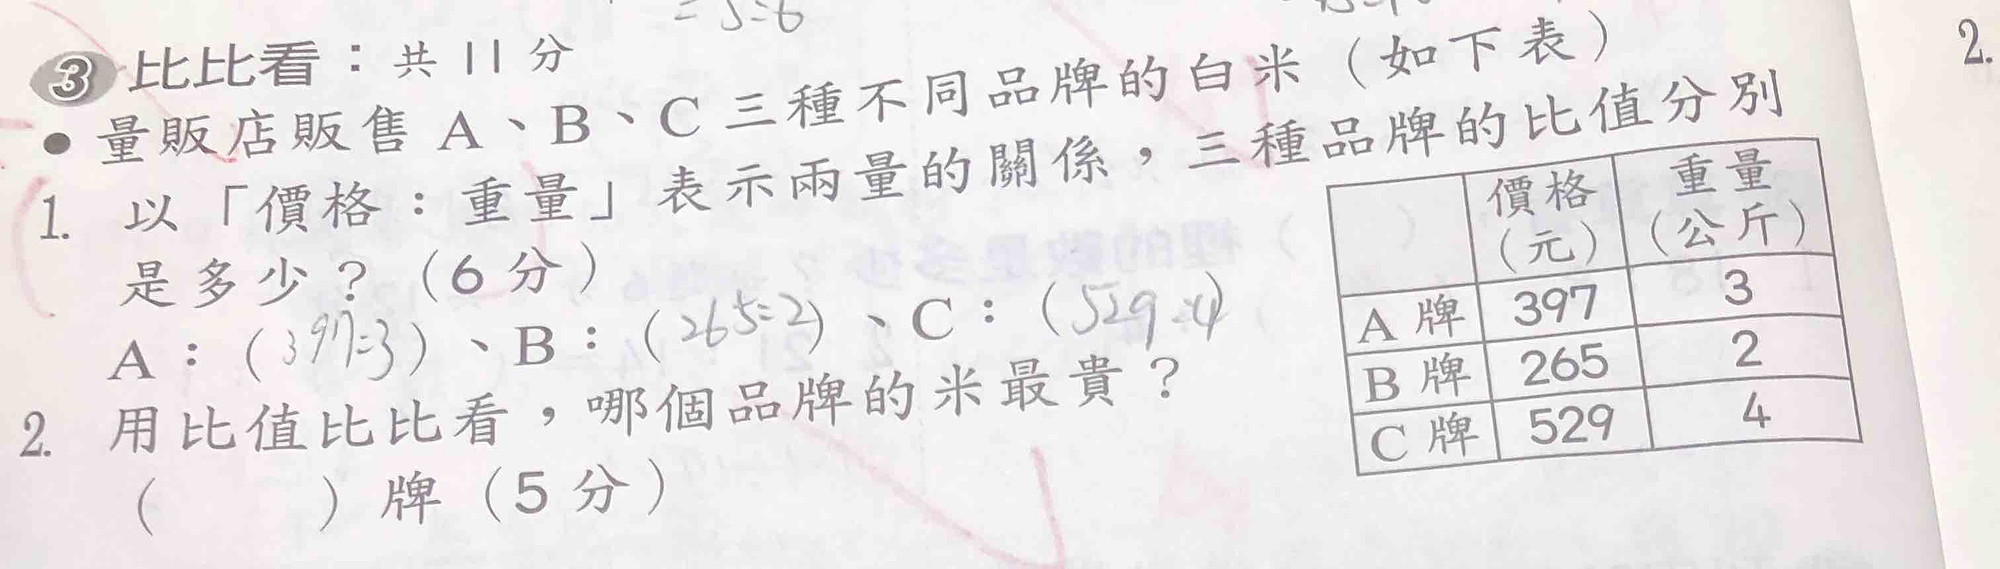 =5:6
③ 比比看：共 11 分
● 量販店販售 A、B、C 三種不同品牌的白米（如下表）
1. 以「價格：重量」表示兩量的關係，三種品牌的比值分別
是多少？（6 分）
A：（397:3）、B：（265:2）、C：（529:4）
2. 用比值比比看，哪個品牌的米最貴？
（　　）牌（5 分）
價格（元） 重量（公斤）
A 牌 397 3
B 牌 265 2
C 牌 529 4
2.